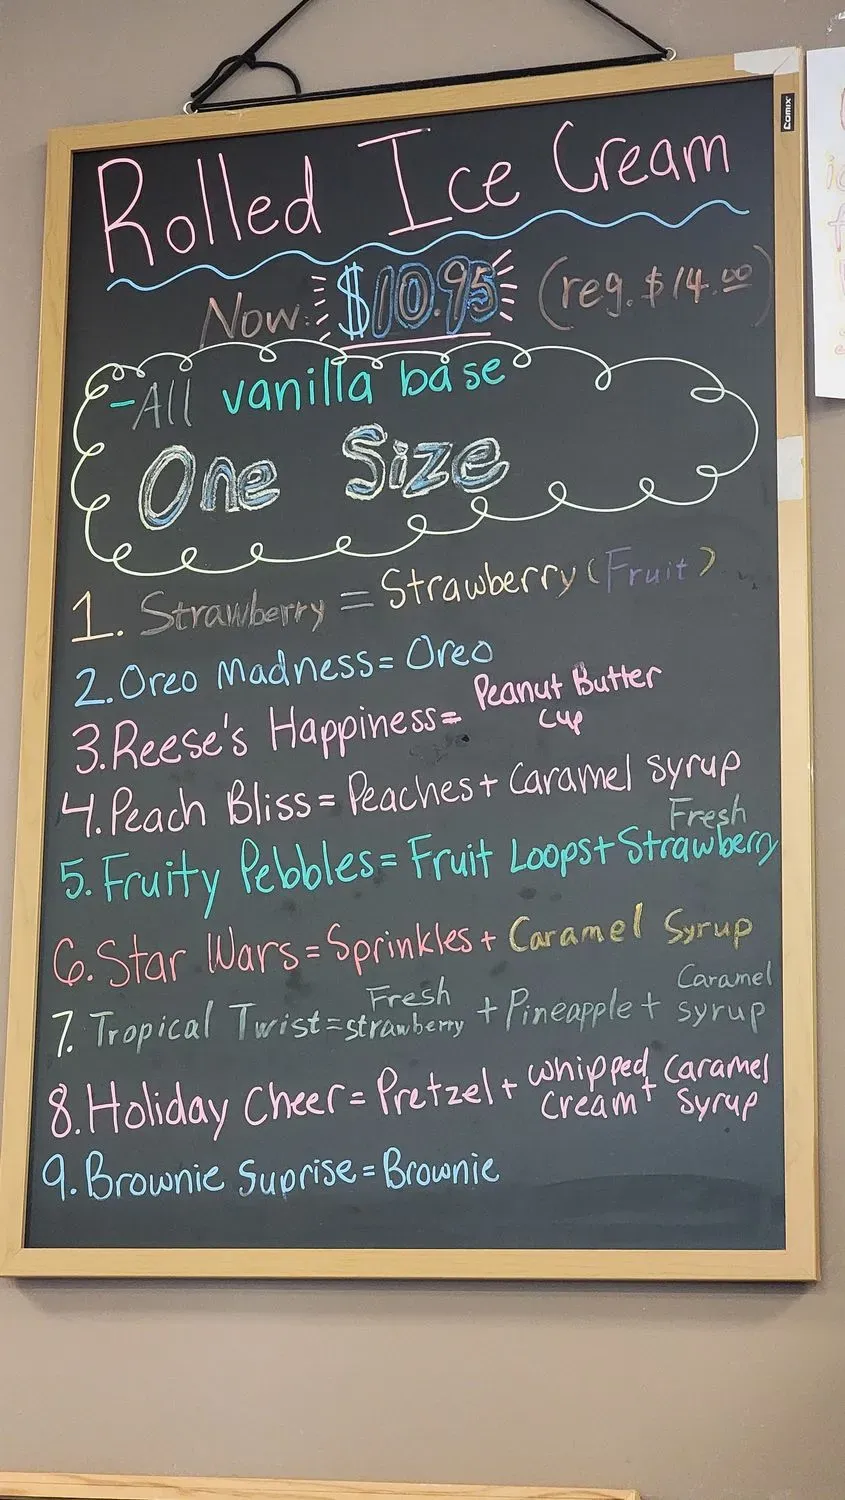 Comix
Rolled Ice Cream
Now: $10.95 (reg. $14.00)
-All vanilla base
One Size
1. Strawberry = Strawberry (Fruit)
2. Oreo Madness = Oreo
3. Reese's Happiness = Peanut Butter
Cup
4. Peach Bliss = Peaches + Caramel syrup
5. Fruity Pebbles = Fruit Loops + Fresh
Strawberry
6. Star Wars = Sprinkles + Caramel Syrup
7. Tropical Twist = Fresh strawberry + Pineapple + Caramel syrup
8. Holiday Cheer = Pretzel + whipped cream + Caramel Syrup
9. Brownie Suprise = Brownie